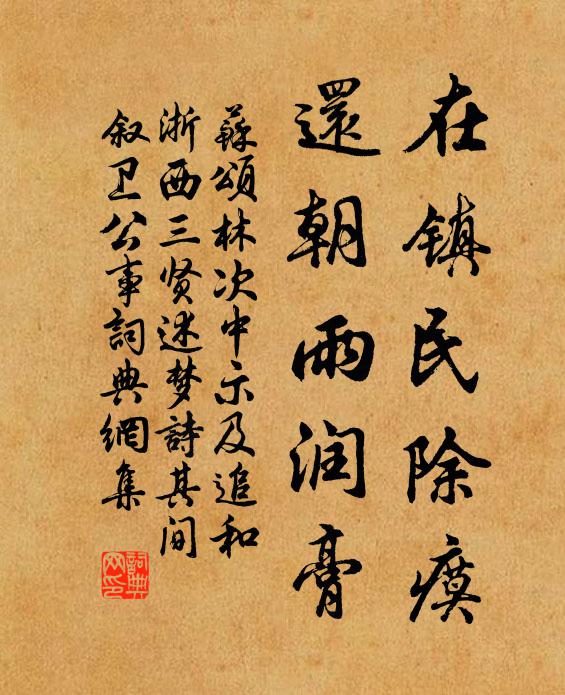 在镇民除瘼
還朝雨润膏
蘇頌林次中示及追和
浙西三贤述梦詩其间
叙卫公事詞典網集
詞典
网印